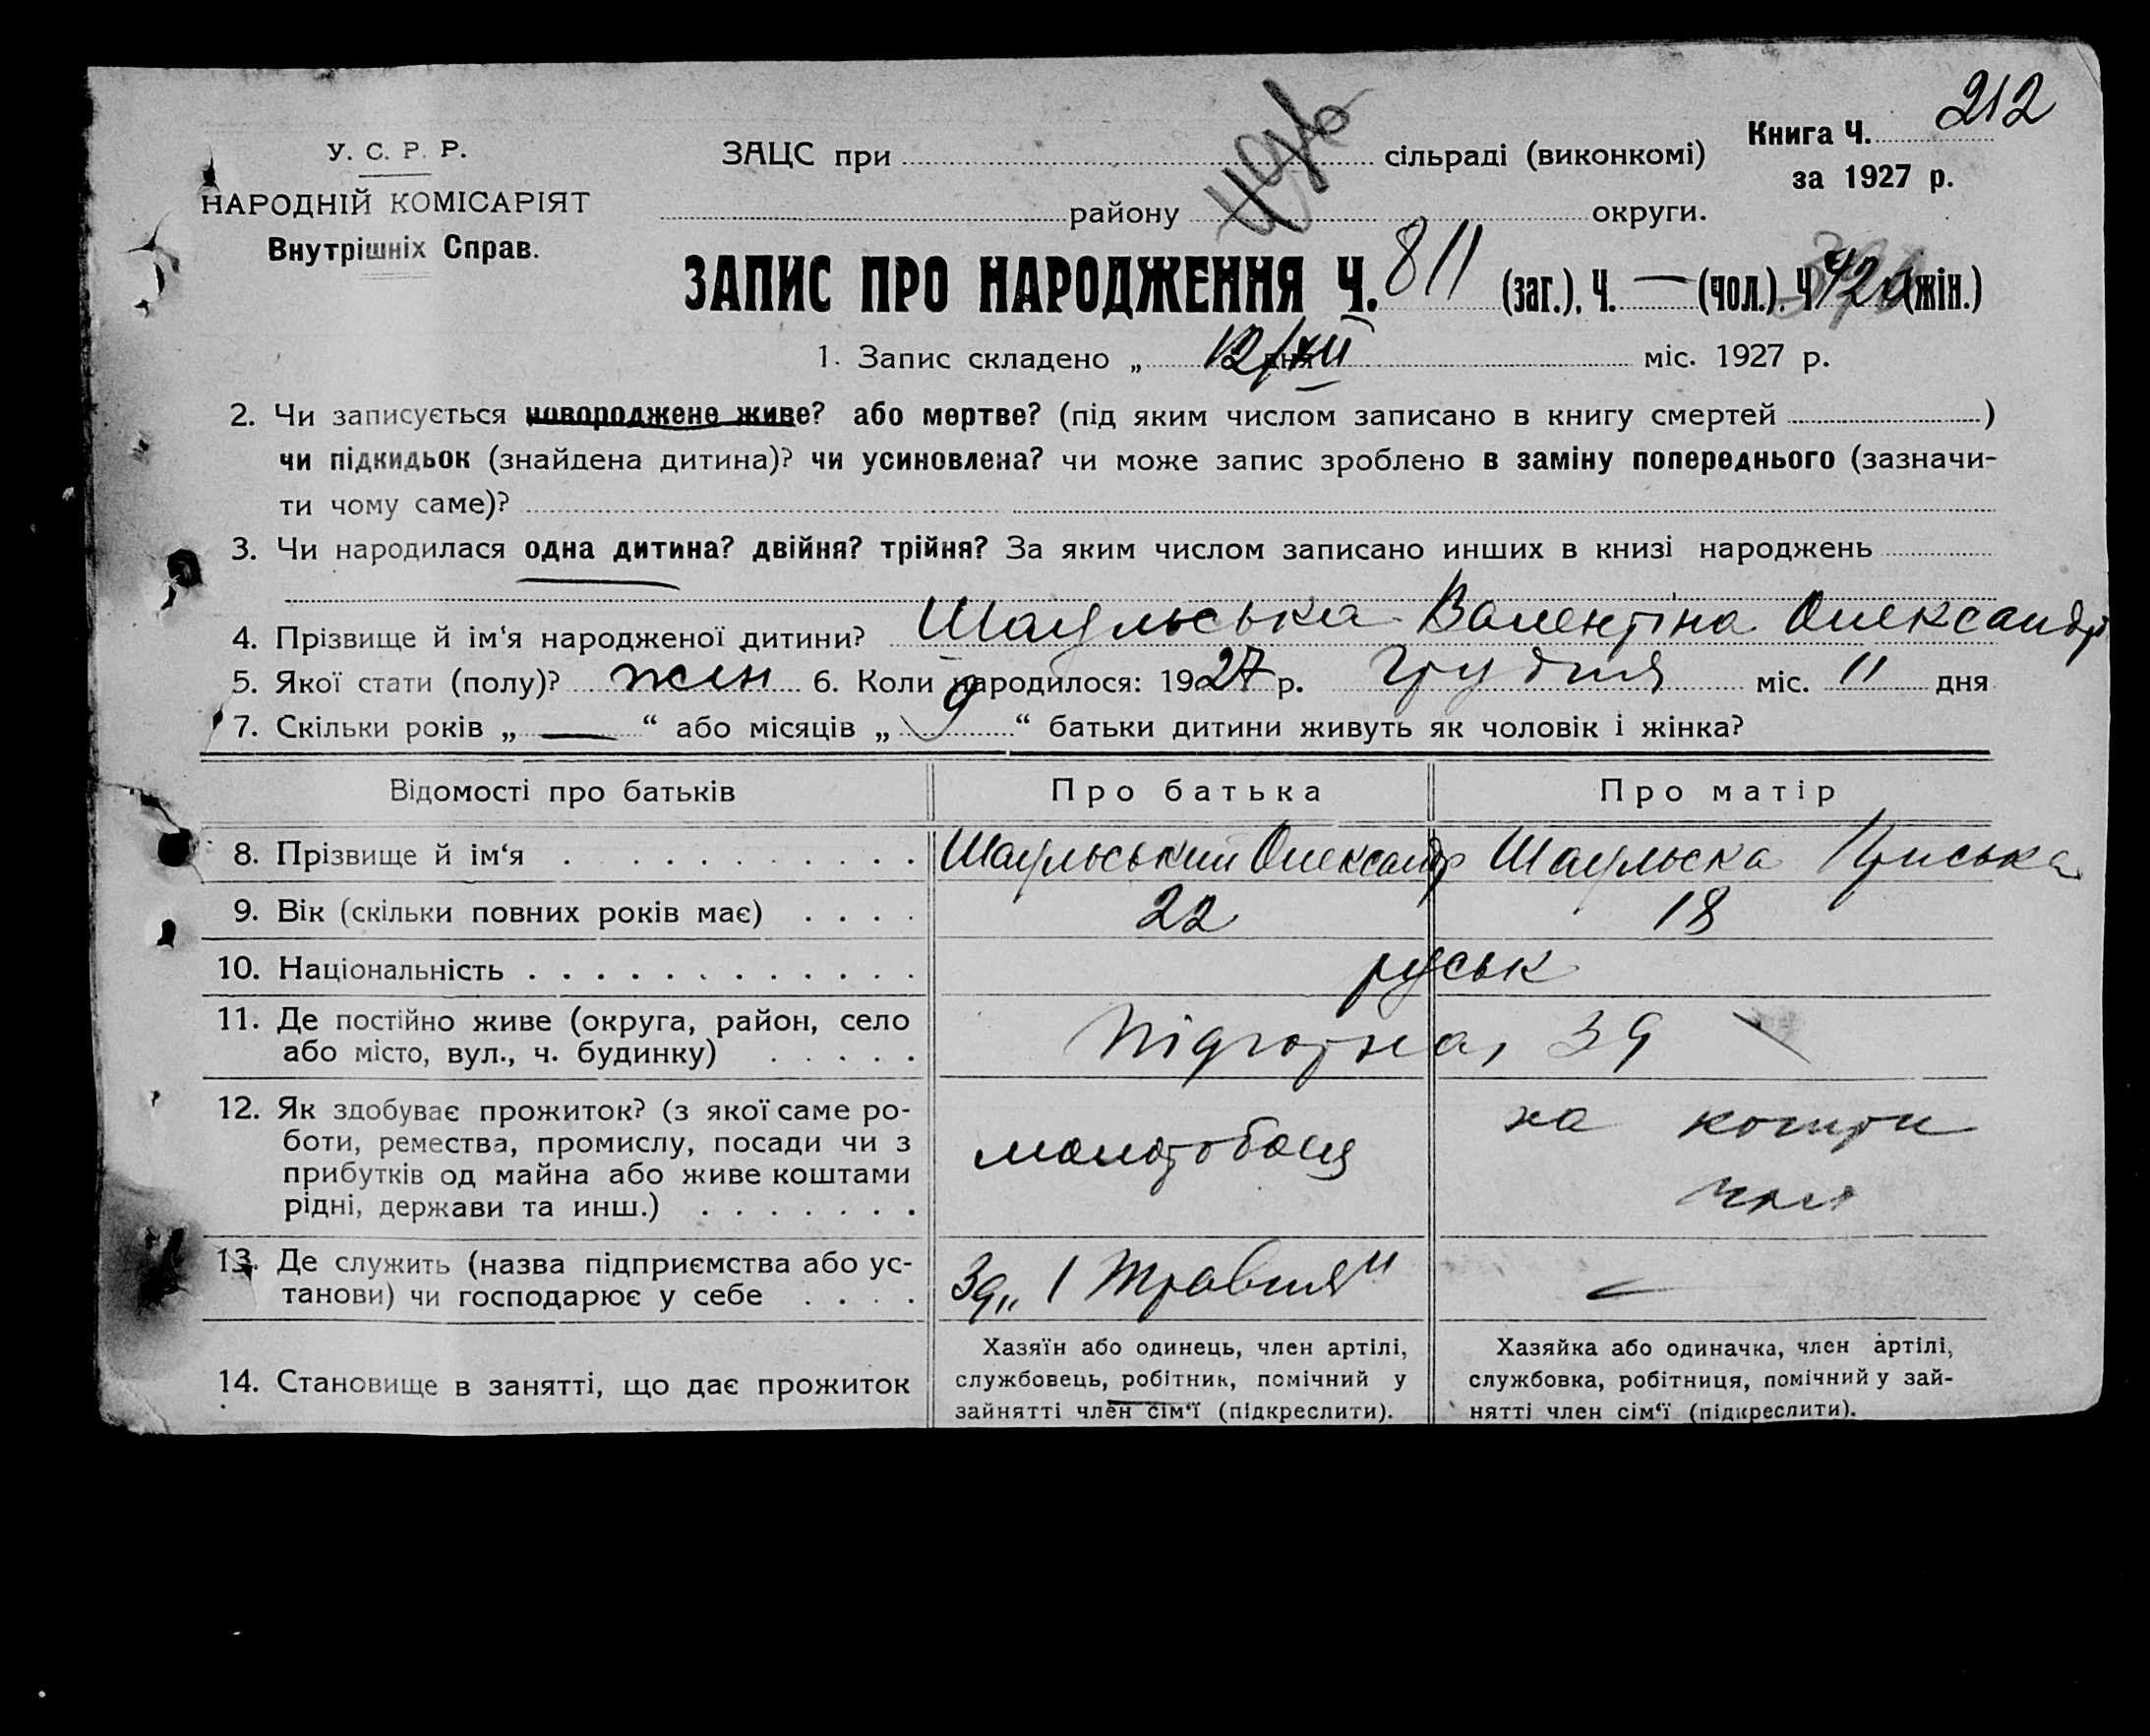 212
У. С. Р. Р.
НАРОДНІЙ КОМІСАРІЯТ
Внутрішніх Справ.
ЗАЦС при сільраді (виконкомі)
Книга Ч.
за 1927 р.
району округи.
ЗАПИС ПРО НАРОДЖЕННЯ Ч. 811 (заг.), Ч. — (чол.), Ч. 420 (жін.)
1. Запис складено „ 12/XII дня міс. 1927 р.
2. Чи записується новороджене живе? або мертве? (під яким числом записано в книгу смертей )
чи підкидьок (знайдена дитина)? чи усиновлена? чи може запис зроблено в заміну попереднього (зазначи-
ти чому саме)?
3. Чи народилася одна дитина? двійня? трійня? За яким числом записано инших в книзі народжень
4. Прізвище й ім‘я народженої дитини? Шаульська Валентіна Олександр
5. Якої стати (полу)? жін 6. Коли народилося: 1927 р. грудня міс. 11 дня
7. Скільки років „ — “ або місяців „ 9 “ батьки дитини живуть як чоловік і жінка?
Відомості про батьків Про батька Про матір
8. Прізвище й ім‘я Шаульський Олександр Шаульска Приська
9. Вік (скільки повних років має) 22 18
10. Національність руськ
11. Де постійно живе (округа, район, село
або місто, вул., ч. будинку) Підгорна, 39
12. Як здобуває прожиток? (з якої саме ро-
боти, ремества, промислу, посади чи з
прибутків од майна або живе коштами
рідні, держави та инш.) молотобоєц на кошти чол
13. Де служить (назва підприємства або ус-
танови) чи господарює у себе Зд „1 Травня“ —
14. Становище в занятті, що дає прожиток
Хазяїн або одинець, член артілі,
службовець, робітник, помічний у
зайнятті член сім‘ї (підкреслити).
Хазяйка або одиначка, член артілі,
службовка, робітниця, помічний у зай-
нятті член сім‘ї (підкреслити).